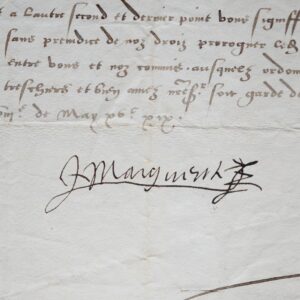 t a lautre second et dernier point vous signiff
sans preiudice de noz droiz proroguer
entre vous et noz commis ausquelz ordon
treschiers et bien amez soit garde de
de May xvc xix
Marguerite